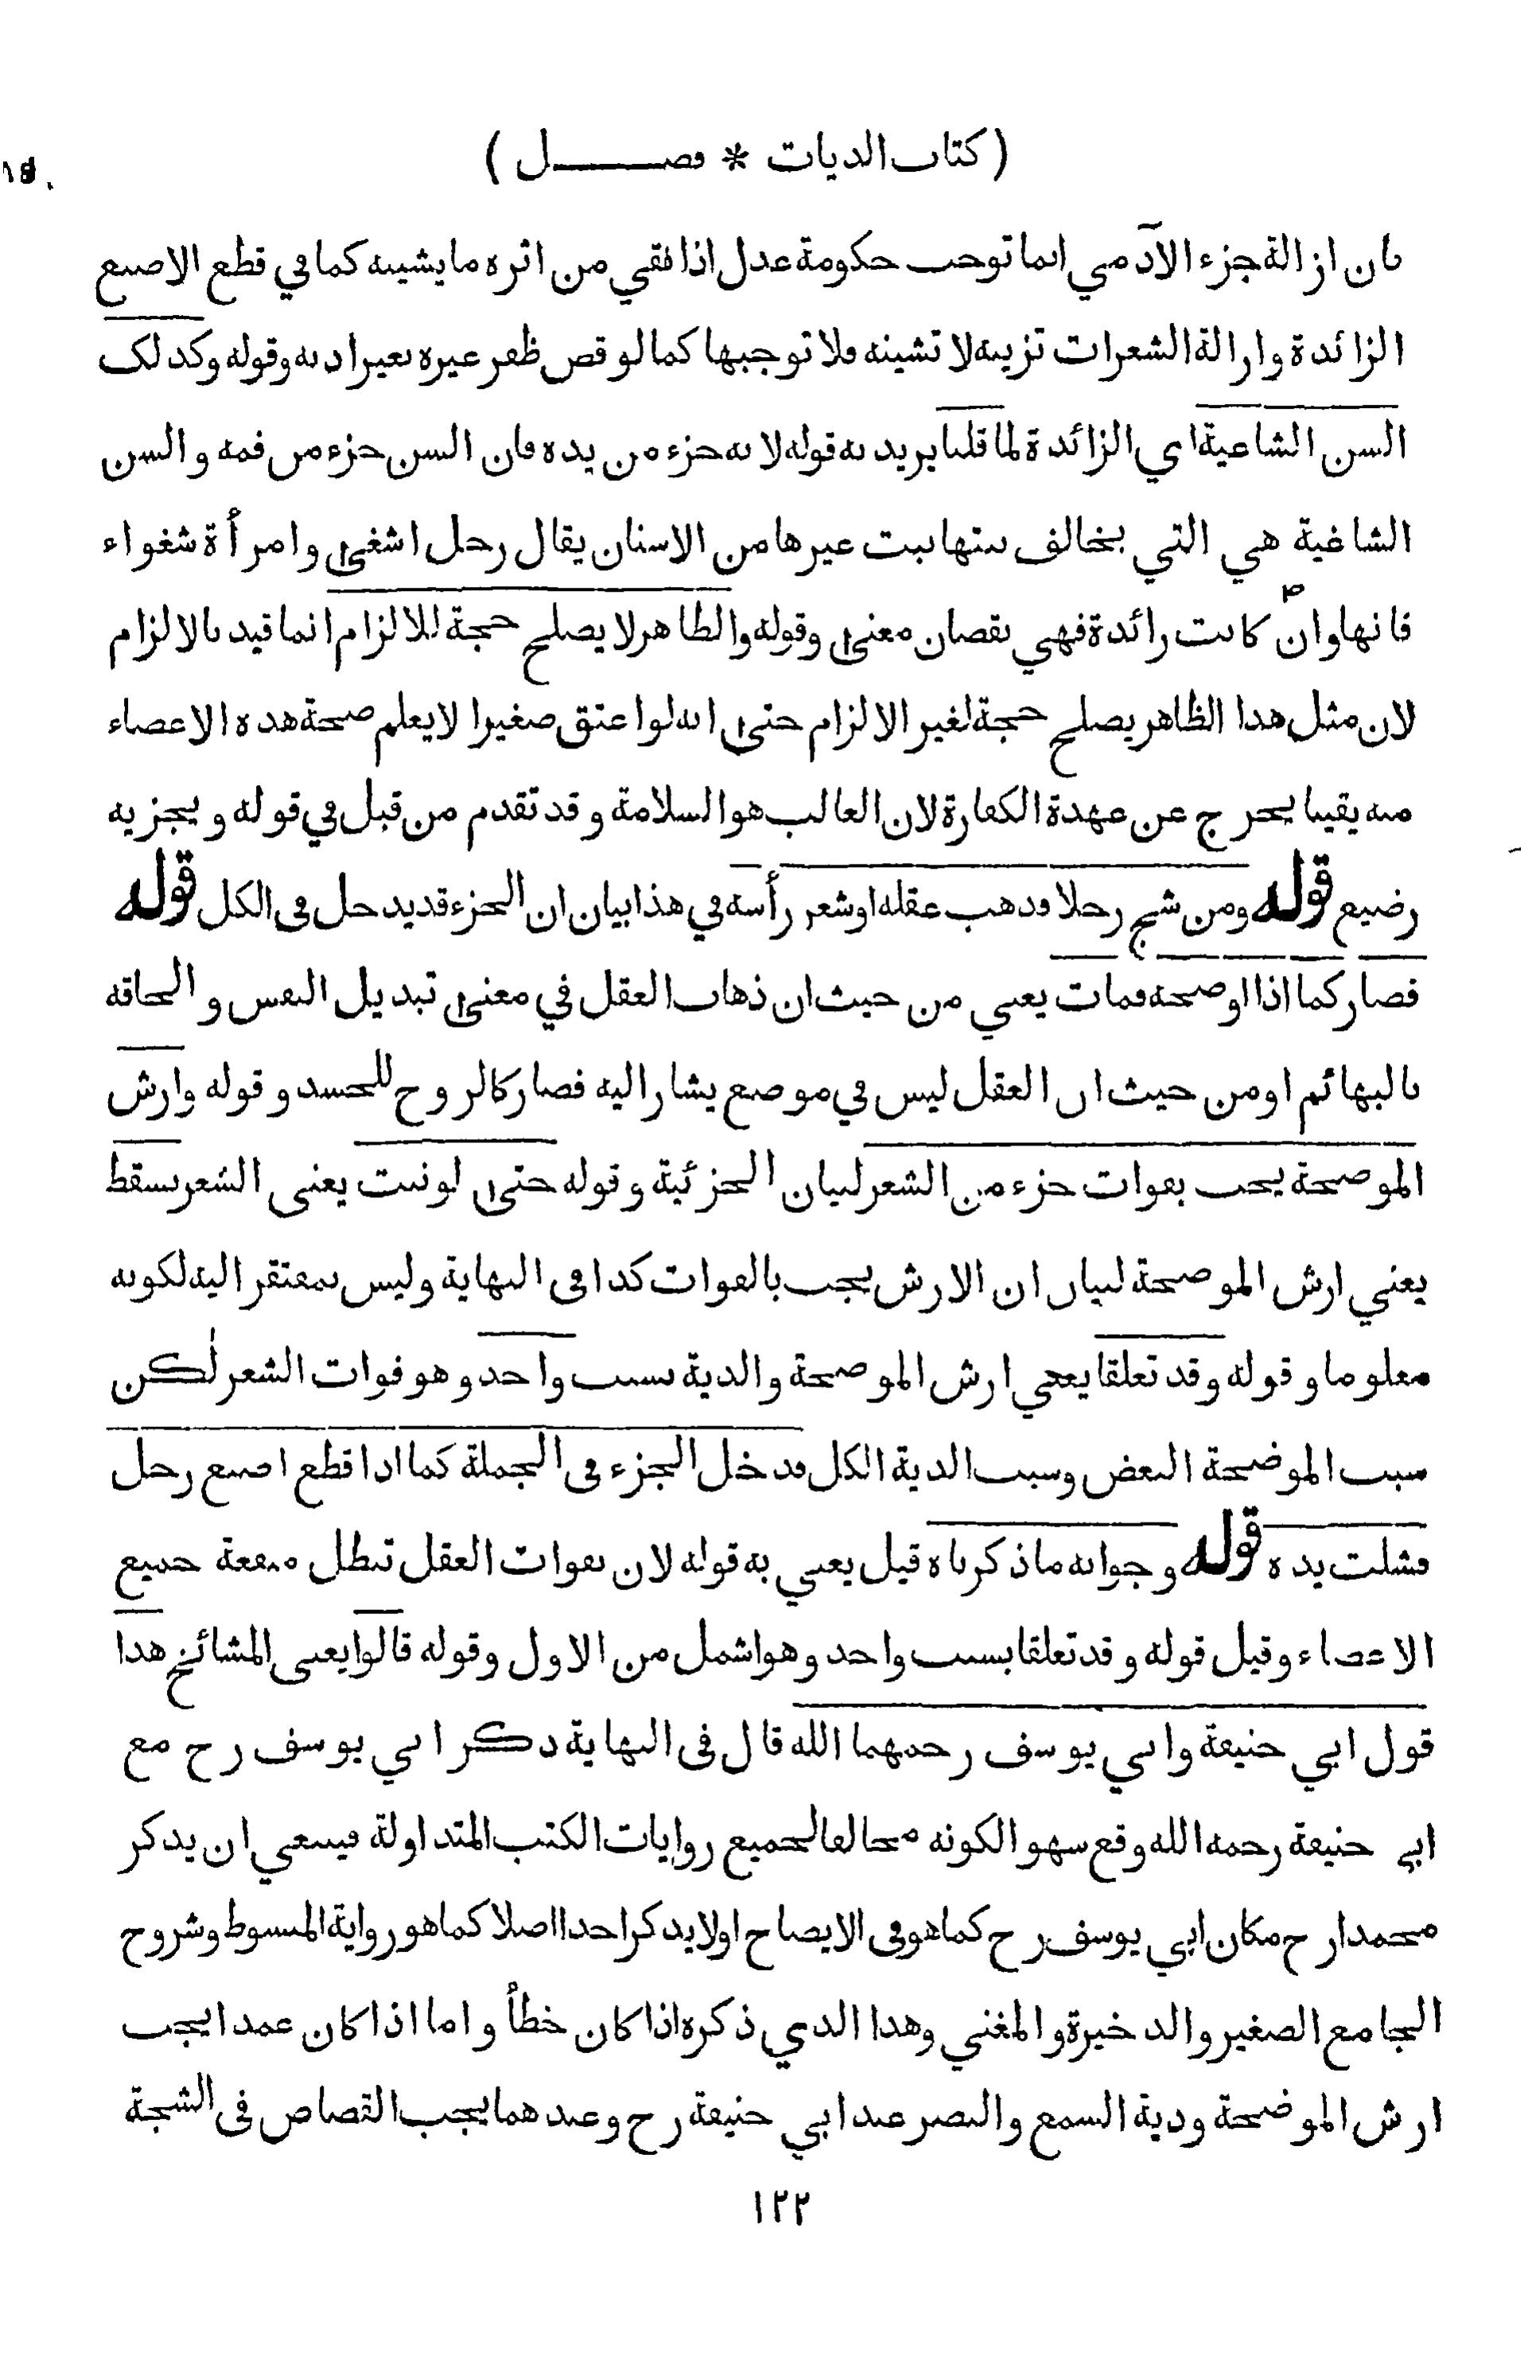 ( كتاب الديات * فصــــل )
بان ازالة جزء الآدمي انما توجب حكومة عدل اذا بقي من اثره ما يشينه كما في قطع الاصبع
الزائدة وازالة الشعرات تزينه لا تشينه فلا توجبها كما لو قص ظفر غيره بغير اذنه وقوله وكذلك
السن الشاغية اي الزائدة لما قلنا يريد به قوله لانه جزء من يده فان السن جزء من فمه والسن
الشاغية هي التي يخالف نبتها نبت غيرها من الاسنان يقال رجل اشغى وامرأة شغواء
فانها وان كانت زائدة فهي نقصان معنى وقوله والظاهر لا يصلح حجة للالزام انما قيد بالالزام
لان مثل هذا الظاهر يصلح حجة لغير الالزام حتى انه لو اعتق صغيرا لا يعلم صحة هذه الاعضاء
منه يقينا يخرج عن عهدة الكفارة لان الغالب هو السلامة وقد تقدم من قبل في قوله ويجزيه
رضيع قوله ومن شج رجلا فذهب عقله او شعر رأسه في هذا بيان ان الجزء قد يدخل في الكل قوله
فصار كما اذا اوضحه فمات يعني من حيث ان ذهاب العقل في معنى تبديل النفس والحاقه
بالبهائم او من حيث ان العقل ليس في موضع يشار اليه فصار كالروح للجسد وقوله وارش
الموضحة يجب بفوات جزء من الشعر لبيان الجزئية وقوله حتى لو نبت يعني الشعر يسقط
يعني ارش الموضحة لبيان ان الارش يجب بالفوات كذا في النهاية وليس بمفتقر اليه لكونه
معلوما وقوله وقد تعلقا يعني ارش الموضحة والدية بسبب واحد وهو فوات الشعر لٰكن
سبب الموضحة البعض وسبب الدية الكل فدخل الجزء في الجملة كما اذا قطع اصبع رجل
فشلت يده قوله وجوابه ما ذكرناه قيل يعني به قوله لان بفوات العقل تبطل منفعة جميع
الاعضاء وقيل قوله وقد تعلقا بسبب واحد وهو اشمل من الاول وقوله قالوا يعني المشائخ هذا
قول ابي حنيفة وابي يوسف رحمهما الله قال في النهاية ذكر ابي يوسف رح مع
ابي حنيفة رحمه الله وقع سهوا لكونه مخالفا لجميع روايات الكتب المتداولة فينبغي ان يذكر
محمدا رح مكان ابي يوسف رح كما هو في الايضاح او لا يذكر احدا اصلا كما هو رواية المبسوط وشروح
الجامع الصغير والذخيرة والمغني وهذا الذي ذكره اذا كان خطأ واما اذا كان عمدا يجب
ارش الموضحة ودية السمع والبصر عند ابي حنيفة رح وعندهما يجب القصاص في الشجة
١٢٢